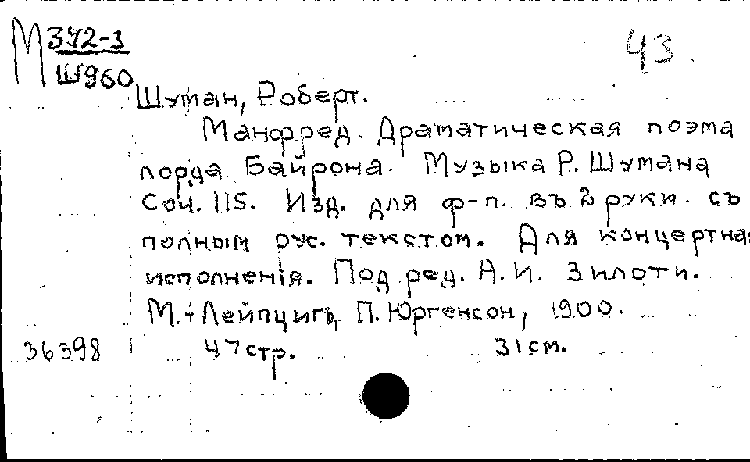 М 372-3
Ш960
43
Шуман, Роберт.
Манфред. Драматическая поэма
лорда Байрона. Музыка Р. Шумана
Соч. 115. Изд. для ф-п. въ 2 руки съ
полным рус. текстом. Для концертнаг
исполненія. Под ред. А.И. Зилоти.
М.-Лейпциг, П. Юргенсон, 1900.
36398 47 стр. 31 см.